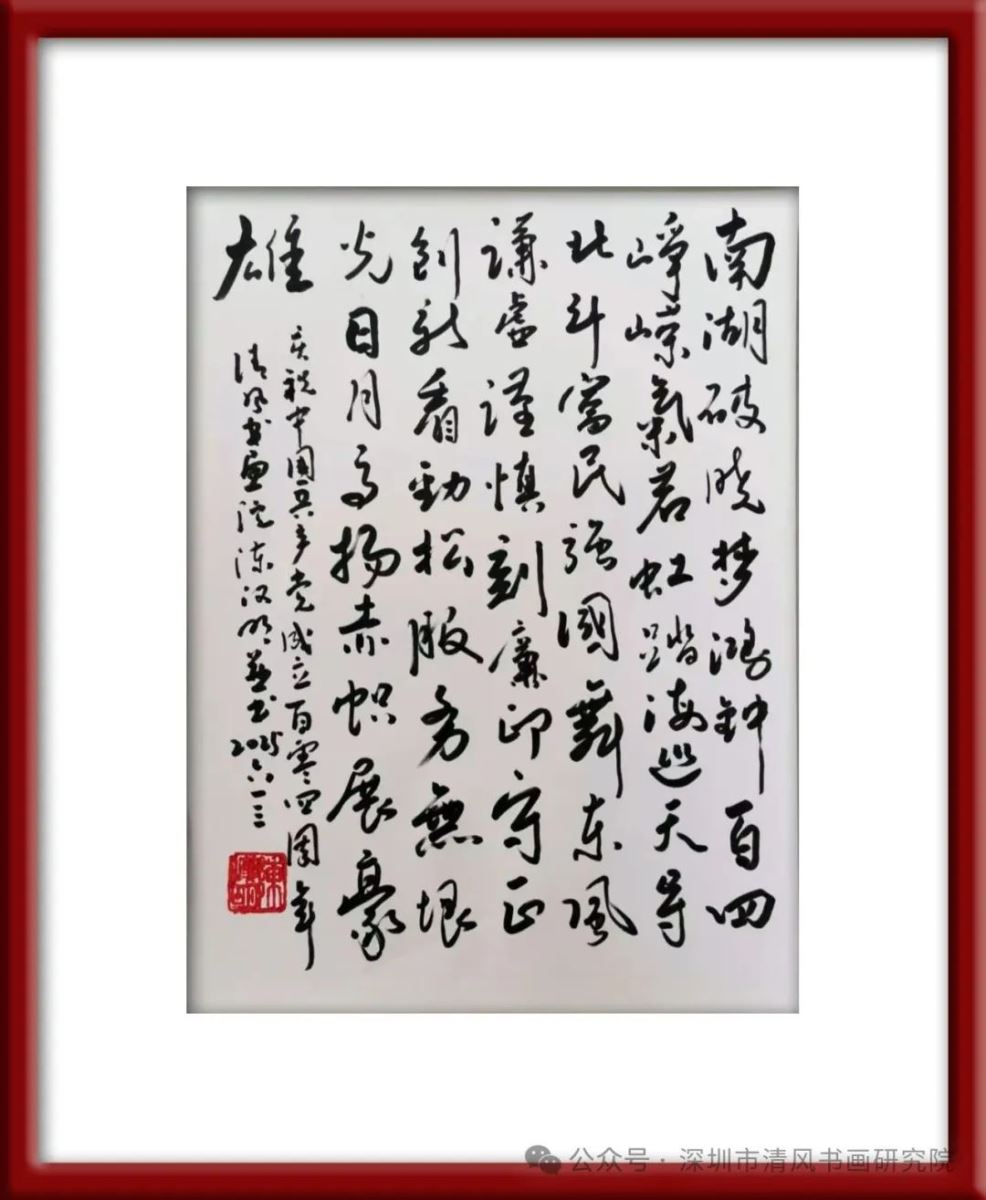 南湖破晓梦鸿钟百四
峥嵘氣若虹踏海巡天寻
北斗富民強國舞东風
谦虚谨慎刻廉印守正
创新看勁松服务無垠
光日月高扬赤帜展豪
雄
庆祝中国共产党成立百零四周年
清风书画院陈汉明并书2025六一三
公众号·深圳市清风书画研究院